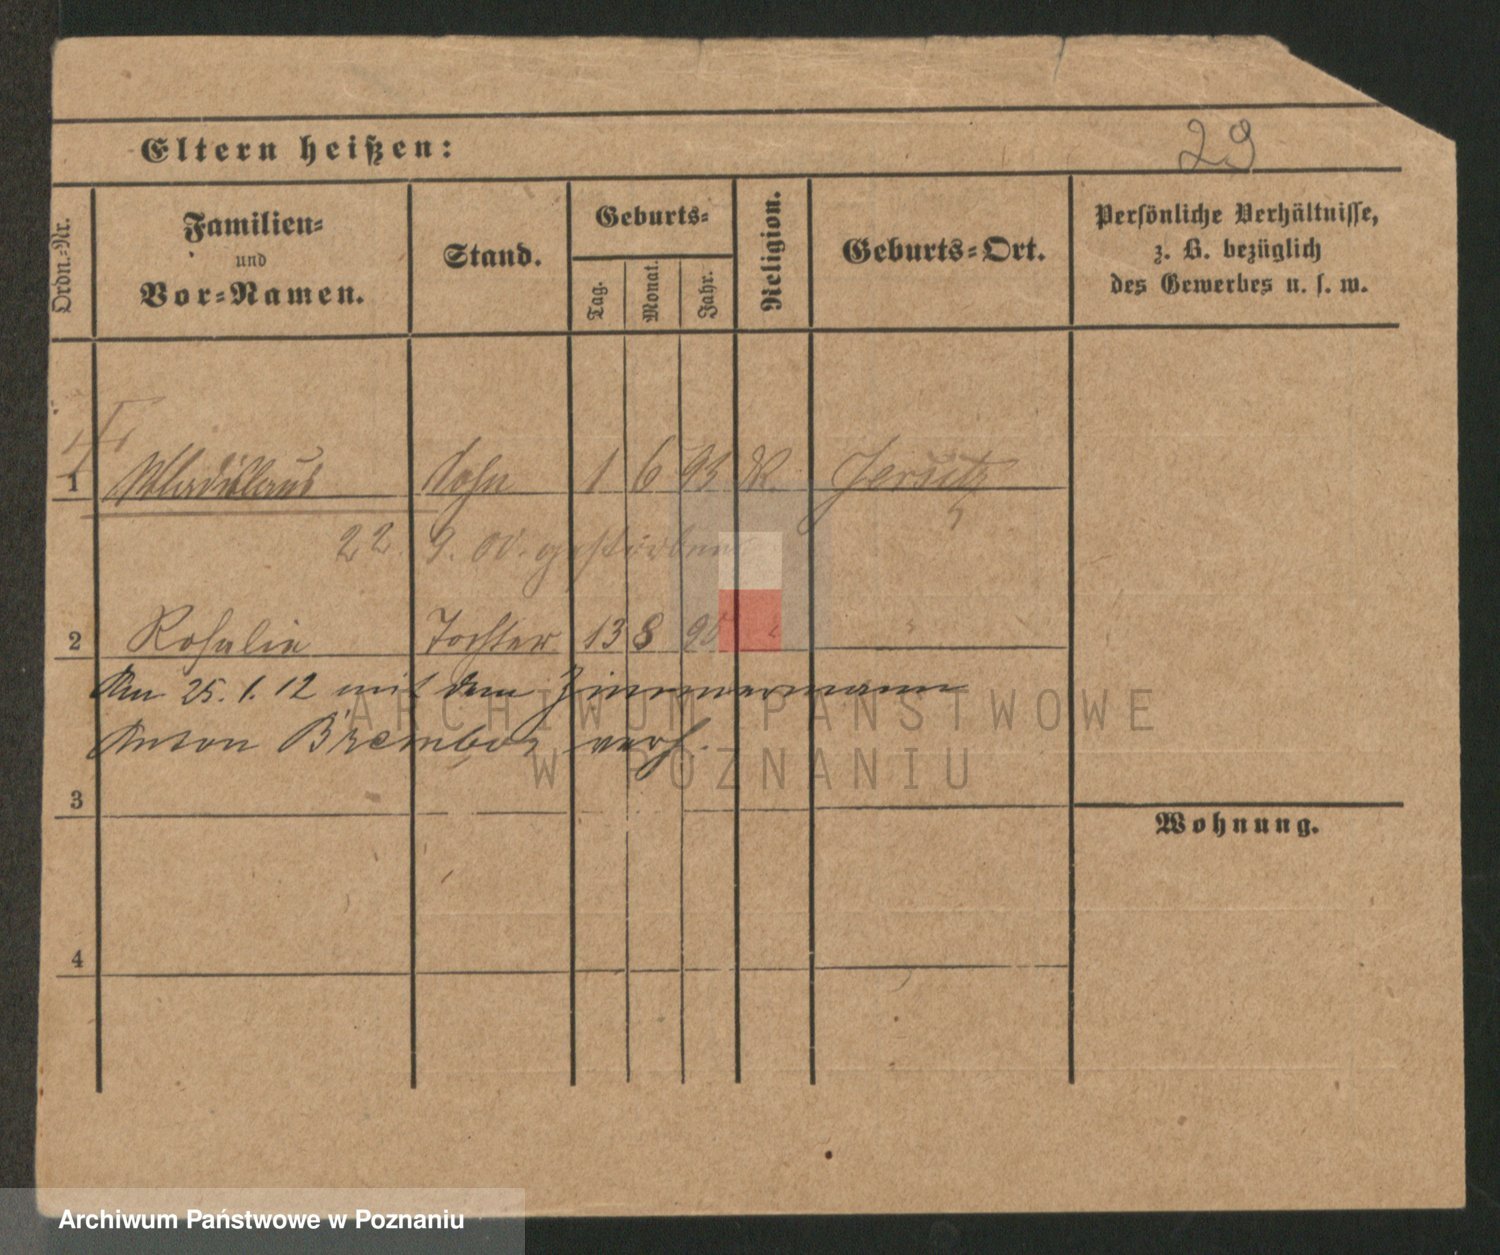 29
Eltern heißen:
Ordn.-Nr.
Familien-
und
Vor-Namen.
Stand.
Geburts-
Tag.
Monat.
Jahr.
Religion.
Geburts-Ort.
Persönliche Verhältnisse,
z. B. bezüglich
des Gewerbes u. s. w.
1 Wladislaus Sohn 1 6 93 K. Jersitz
22. 9. 00. gestorben
2 Rosalie Tochter 13 8
Am 25. 1. 12 mit dem Zimmermann
Anton verh.
ARCHIWUM PAŃSTWOWE
W POZNANIU
3
Wohnung.
4
Archiwum Państwowe w Poznaniu